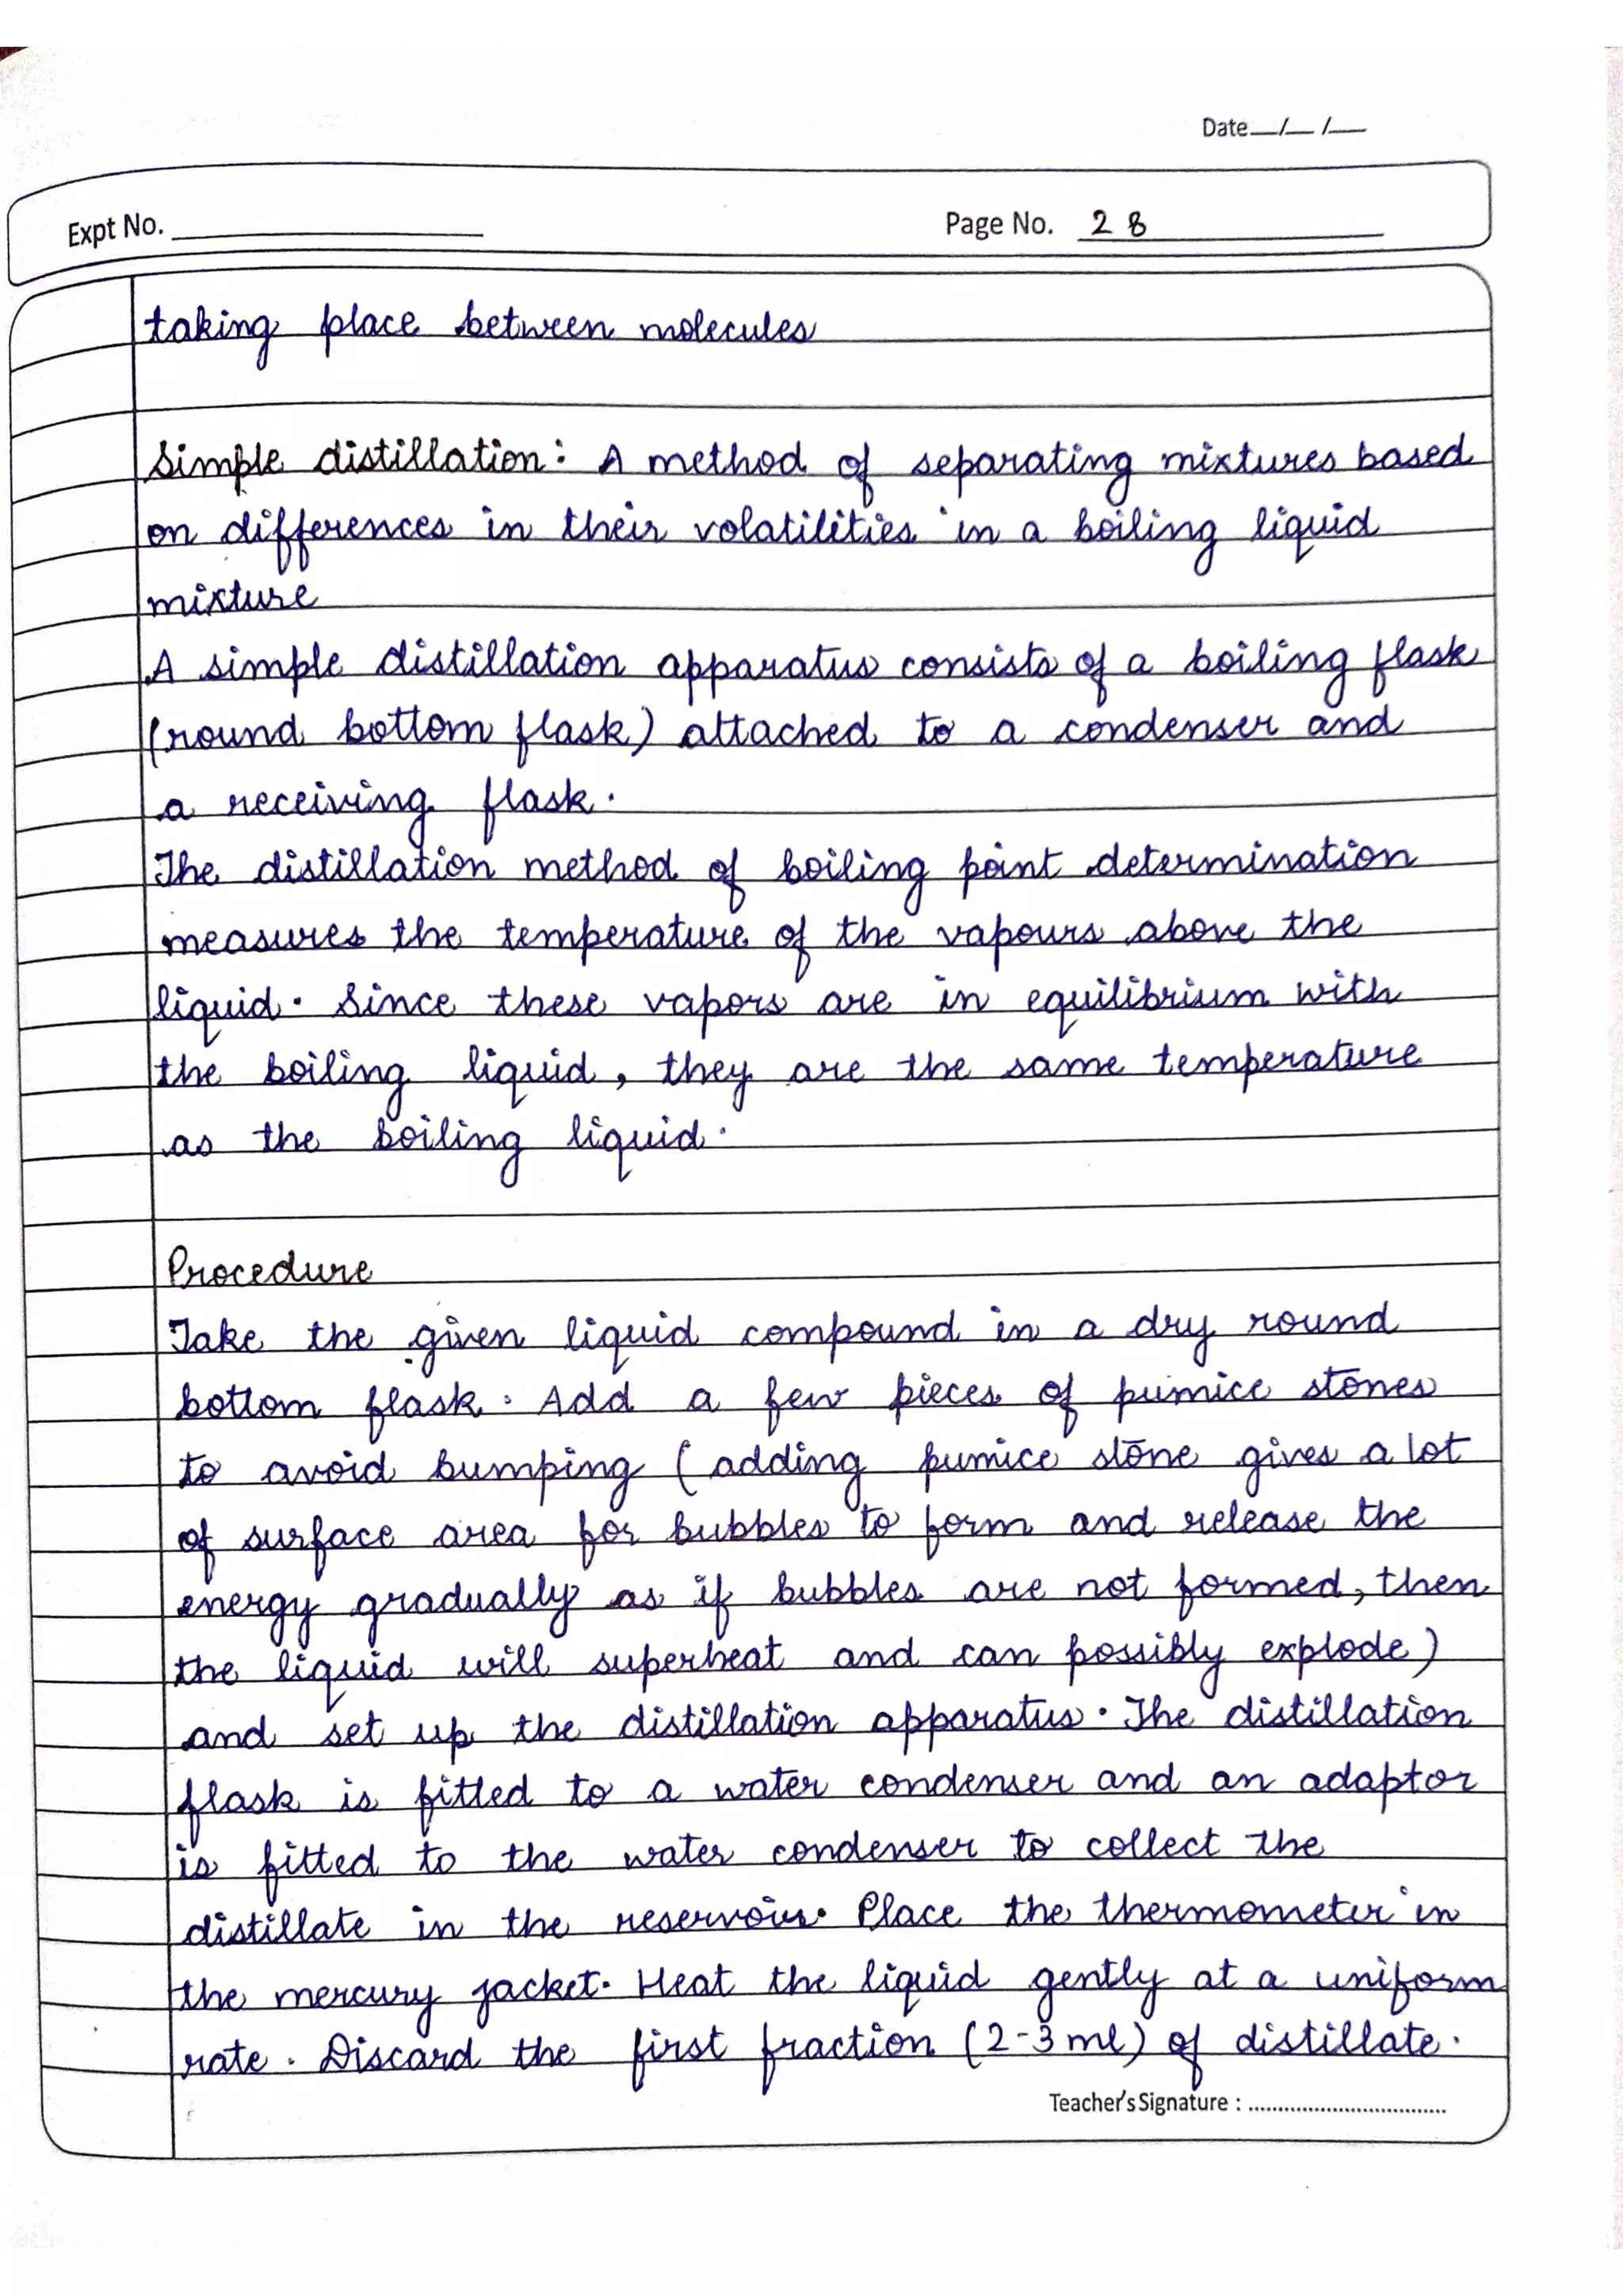 Date__/__/__
Expt No.
Page No. 28
taking place between molecules
Simple distillation: A method of separating mixtures based
on differences in their volatilities in a boiling liquid
mixture
A simple distillation apparatus consists of a boiling flask
(round bottom flask) attached to a condenser and
a receiving flask.
The distillation method of boiling point determination
measures the temperature of the vapours above the
liquid. Since these vapors are in equilibrium with
the boiling liquid, they are the same temperature
as the boiling liquid.
Procedure
Take the given liquid compound in a dry round
bottom flask. Add a few pieces of pumice stones
to avoid bumping (adding pumice stone gives a lot
of surface area for bubbles to form and release the
energy gradually as if bubbles are not formed, then
the liquid will superheat and can possibly explode)
and set up the distillation apparatus. The distillation
flask is fitted to a water condenser and an adaptor
is fitted to the water condenser to collect the
distillate in the reservoir. Place the thermometer in
the mercury jacket. Heat the liquid gently at a uniform
rate. Discard the first fraction (2-3 ml) of distillate.
Teacher's Signature : ..................................